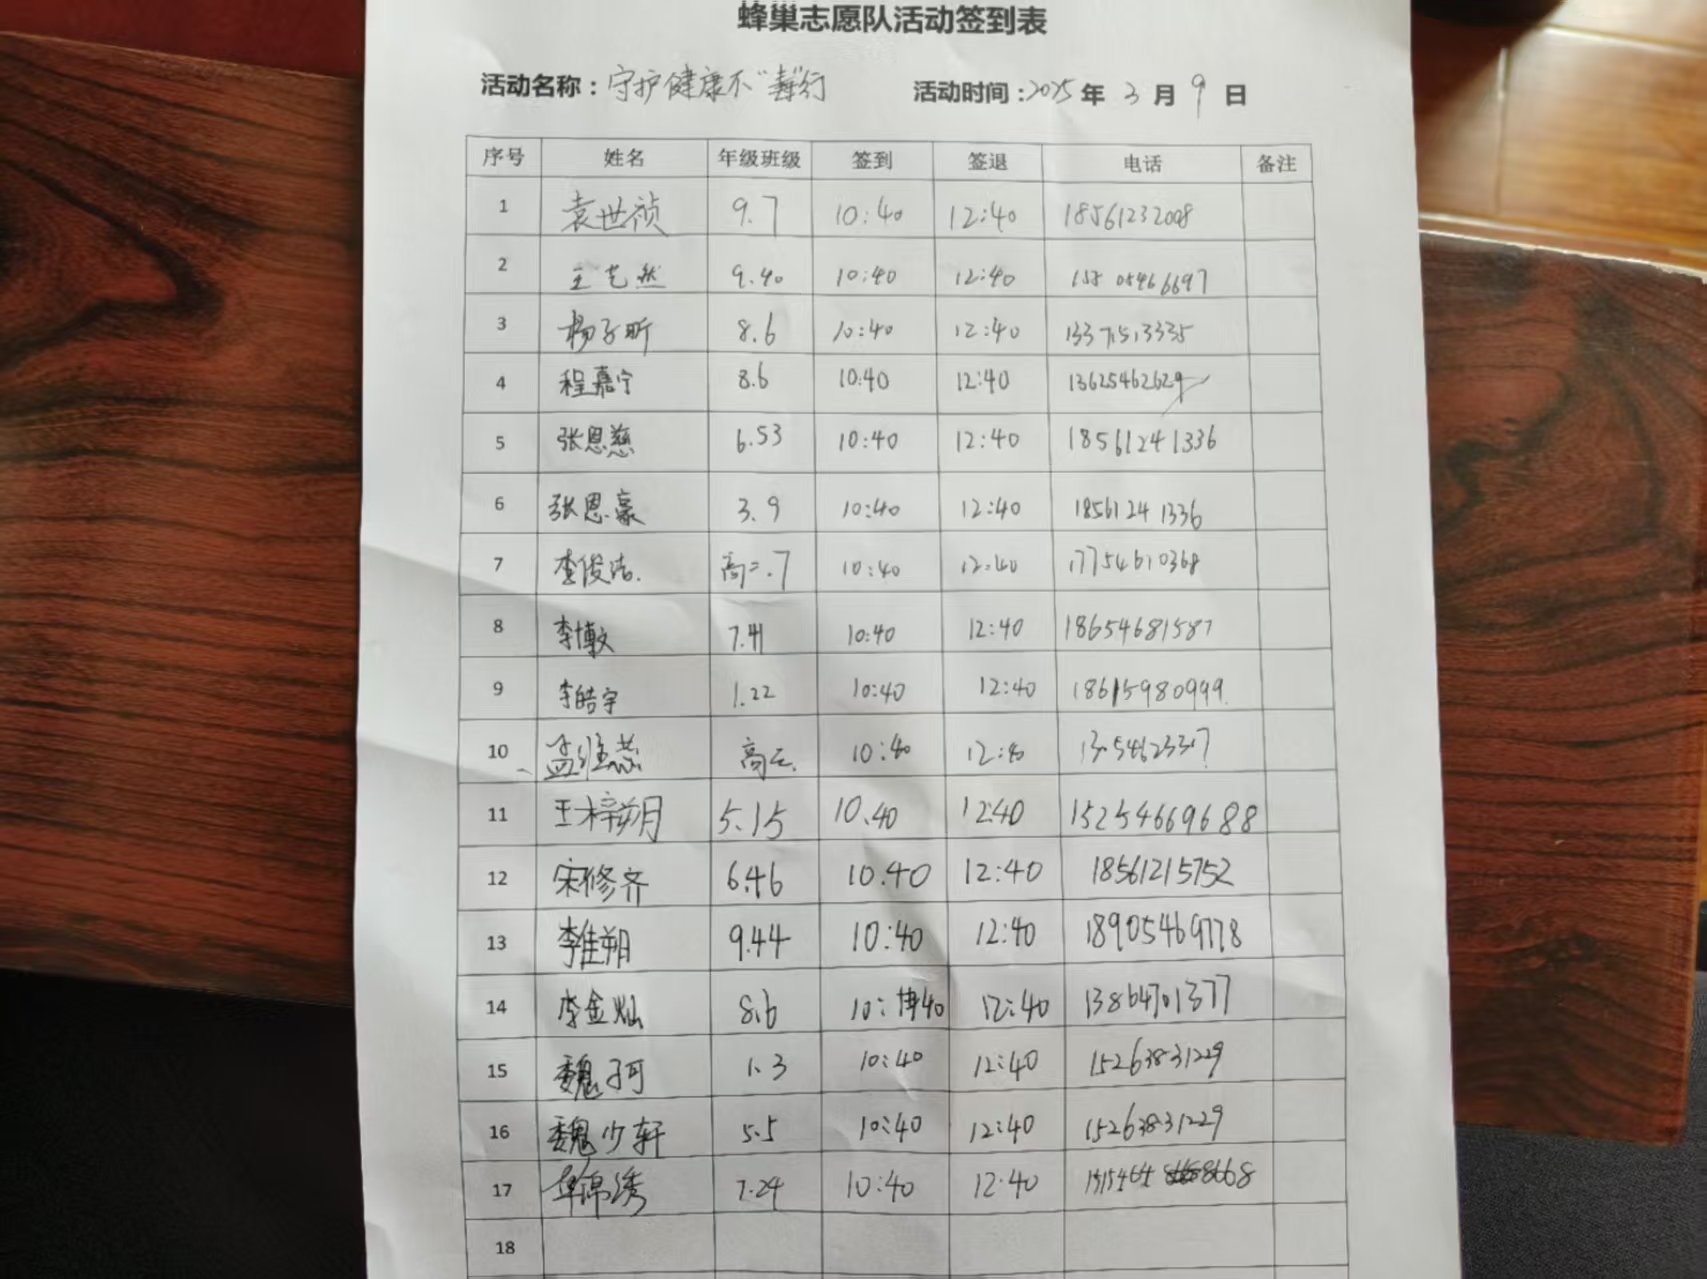 蜂巢志愿队活动签到表
活动名称：守护健康不“毒”行 活动时间：2025年3月9日
序号 姓名 年级班级 签到 签退 电话 备注
1 袁世祯 9.7 10:40 12:40 18561232008
2 王艺然 9.40 10:40 12:40
3 杨子昕 8.6 10:40 12:40 13371513335
4 程嘉宁 8.6 10:40 12:40 13625462629
5 张恩慈 6.53 10:40 12:40 18561241336
6 张恩豪 3.9 10:40 12:40 18561241336
7 李俊洁. 高二.7 10:40 12:40 17754610368
8 李博文 7.41 10:40 12:40 18654681587
9 李皓宇 1.22 10:40 12:40 18615980999
10 10:40 12:40
11 王梓朔 5.15 10.40 12:40 15254669688
12 宋修齐 6.46 10.40 12:40 18561215752
13 李佳朔 9.44 10:40 12:40 18905469778
14 李金灿 8.6 10:40 12:40 13864701377
15 魏子珂 1.3 10:40 12:40 15263831229
16 魏少轩 5.5 10:40 12:40 15263831229
17 7.24 10:40 12:40
18